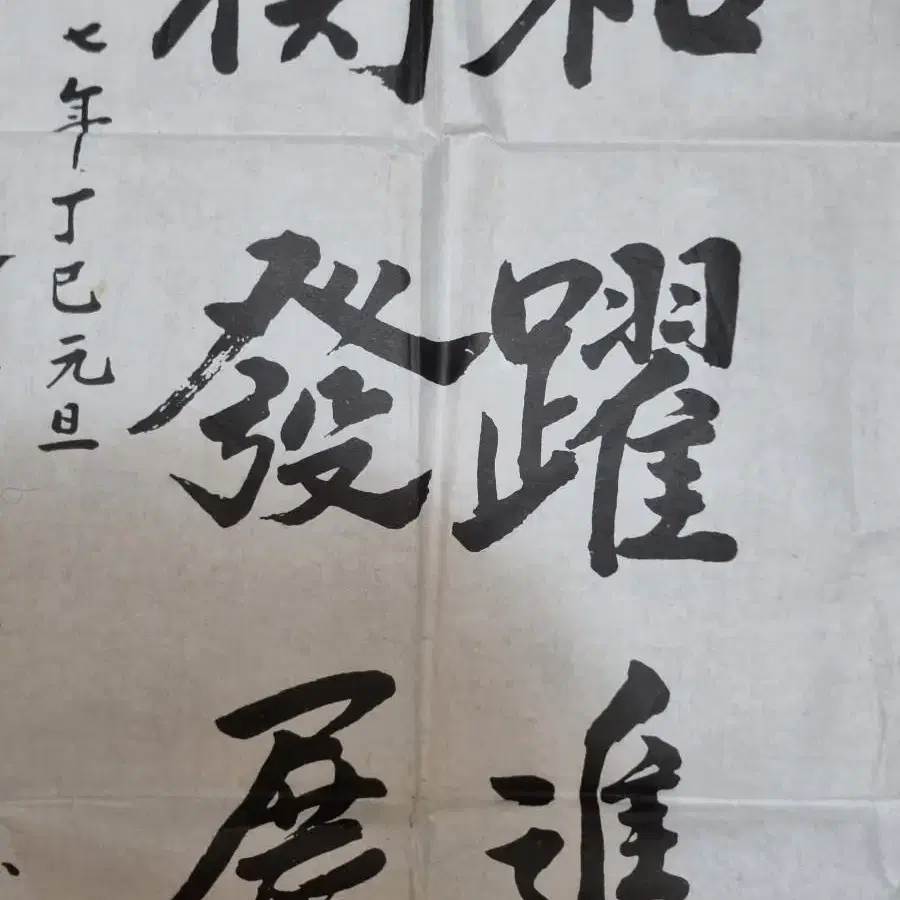 和躍進
衡發展
七年丁巳元旦